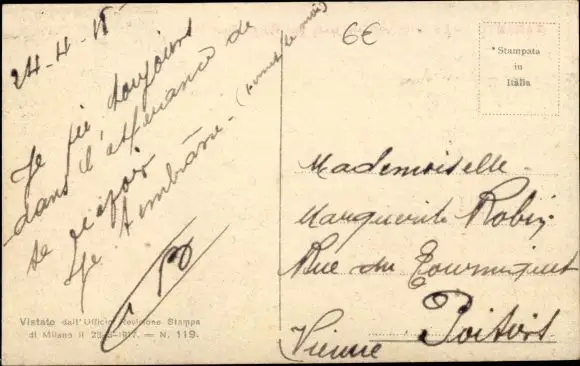 24-4-18
6€
Je toujours
dans l'espérance de
te revoir
Je
CB
* Stampata
in
Italia
Mademoiselle
Marguerite Robin
Rue du Tourniquet
Poitiers
Vienne
Vistato dall'Ufficio Revisione Stampa
di Milano il 1917. — N. 119.